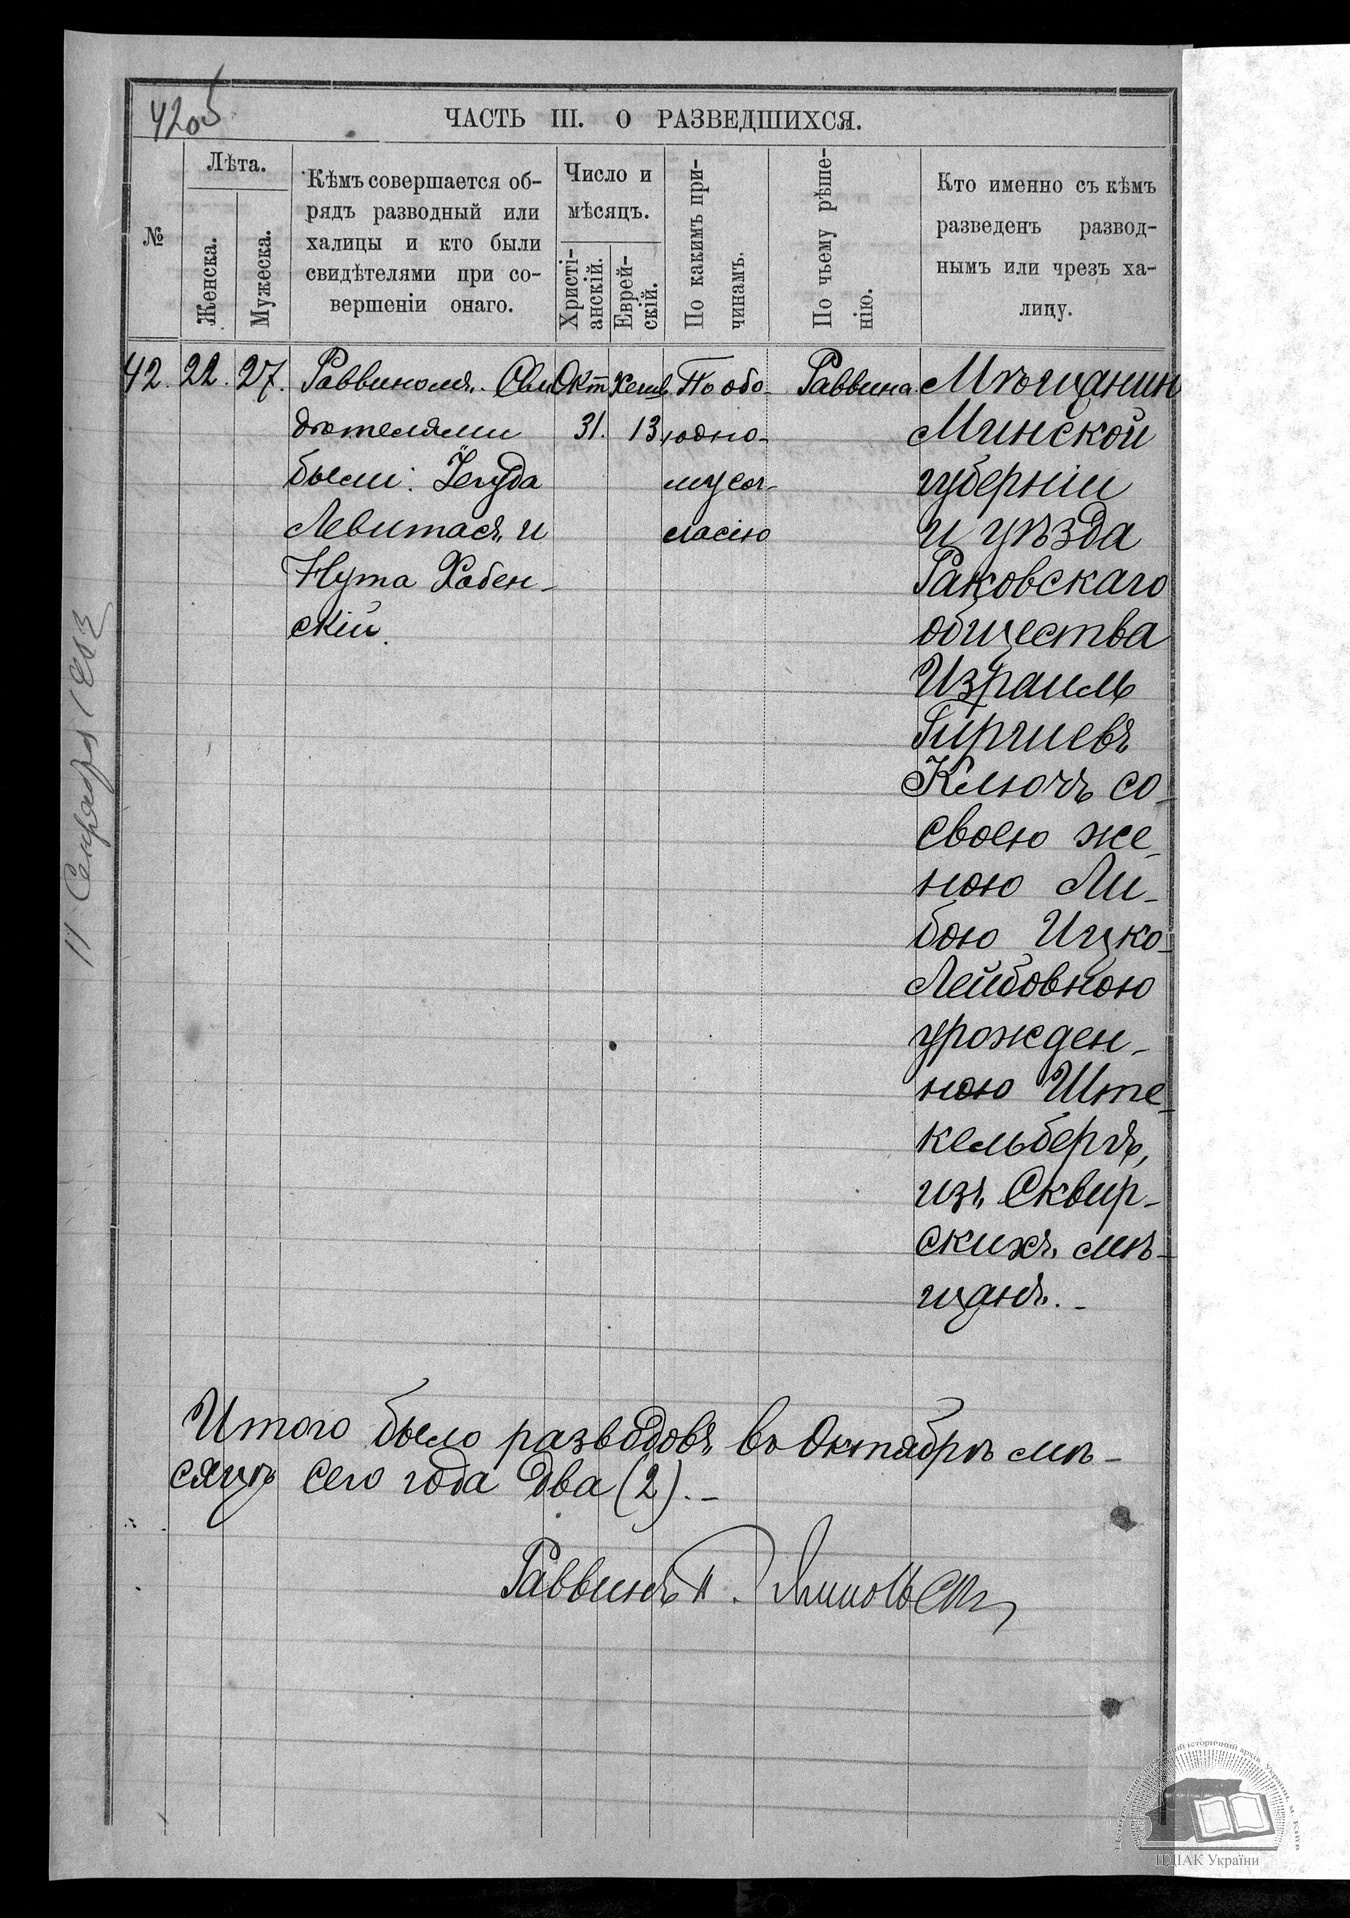 4205
ЧАСТЬ III. О РАЗВЕДШИХСЯ.
№
Лѣта.
Женска.
Мужеска.
Кѣмъ совершается об-
рядъ разводный или
халицы и кто были
свидѣтелями при со-
вершеніи онаго.
Число и
мѣсяцъ.
Христі-
анскій.
Еврей-
скій.
По какимъ при-
чинамъ.
По чьему рѣше-
нію.
Кто именно съ кѣмъ
разведенъ развод-
нымъ или чрезъ ха-
лицу.
42.
22.
27.
Раввиномъ. Сви
дѣтелями
были: Іегуда
Левитасъ и
Нута Хобен-
скій.
Окт
31.
Хешв
13
По обо-
юдно-
му сог-
ласію
Раввина
Мѣщанин
Минской
губерніи
и уѣзда
Раковскаго
общества
Израиль
Гиршевъ
Ключъ со-
своею же-
ною Ли-
бою Ицко-
Лейбовною
урожден-
ною Ште-
кельбергъ,
изъ Сквир-
скихъ мѣ-
щанъ. -
Итого было разводовъ въ Октябрѣ мѣ-
сяцѣ сего года два (2). -
Раввинъ П.
11
ЦДІАК України